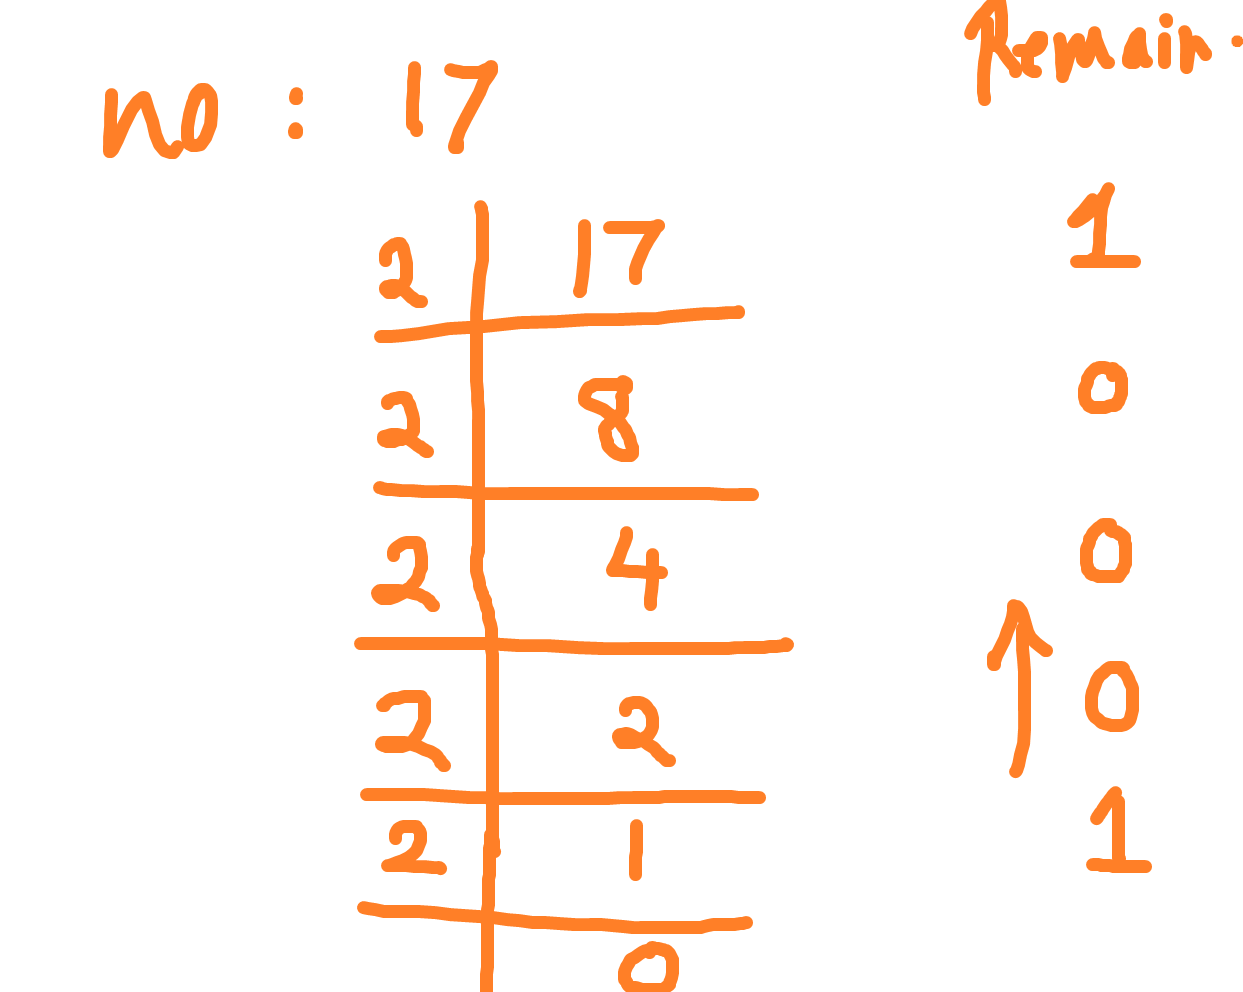 no : 17 Remain.
2 17 1
2 8 0
2 4 0
2 2 0
2 1 1
0